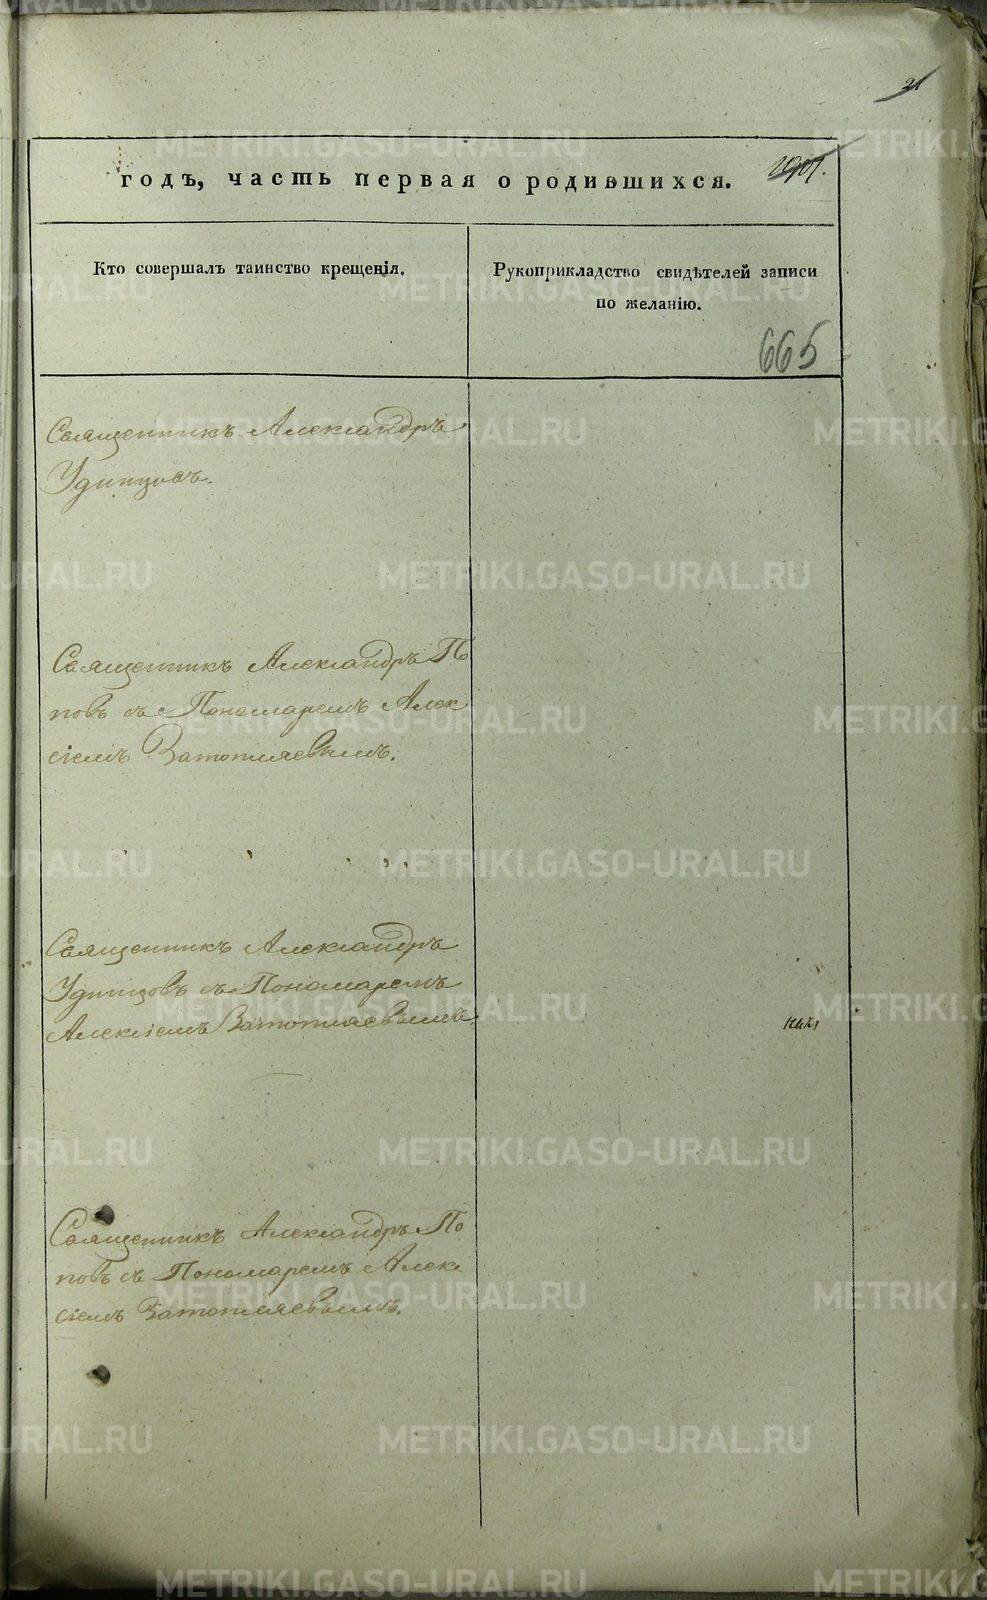 21
годъ, часть первая о родившихся.
Кто совершалъ таинство крещенія.
Рукоприкладство свидѣтелей записи
по желанію.
665
Священникъ Александръ
Удинцовъ.
Священникъ Александръ По
повъ съ Пономаремъ Алек
сіемъ Затопляевымъ.
Священникъ Александръ
Удинцовъ съ Пономаремъ
Алексіемъ Затопляевымъ
Священникъ Александръ По
повъ съ Пономаремъ Алек
сіемъ Затопляевымъ.
METRIKI.GASO-URAL.RU